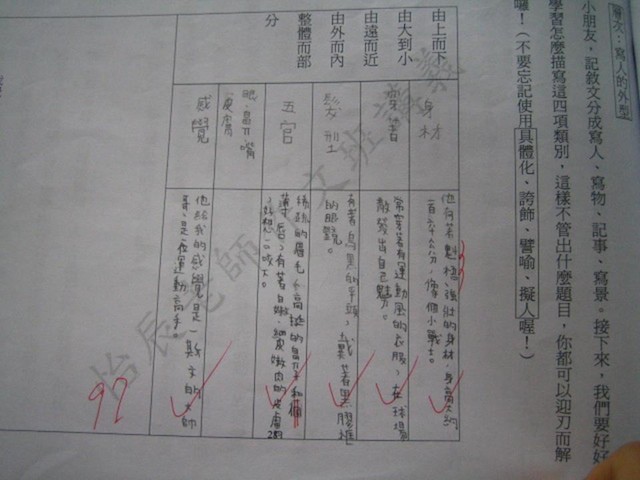 首次：寫人的外型
小朋友，記敘文分成寫人、寫物、記事、寫景。接下來，我們要好好
學習怎麼描寫這四項類別，這樣不管出什麼題目，你都可以迎刃而解
囉！（不要忘記使用具體化、誇飾、譬喻、擬人喔！）
由上而下
由大到小
由遠而近
由外而內
整體而部
分
身材
穿著
髮型
五官
眼、鼻、嘴
皮膚
感覺
他有著魁梧、強壯的身材，身高大約
一百六十公分，像個小戰士。
常穿著有運動風的衣服，在球場
散發出自己魅力。
有著烏黑的平頭，戴著黑膠框
的眼鏡。
細絲的眉毛，高挺的鼻子和
薄唇，有著白嫩、細皮嫩肉的皮膚
，好想一口咬下。
他給我的感覺是一斯文的大帥
哥，是位運動高手。
97
怡辰老師
文班講義